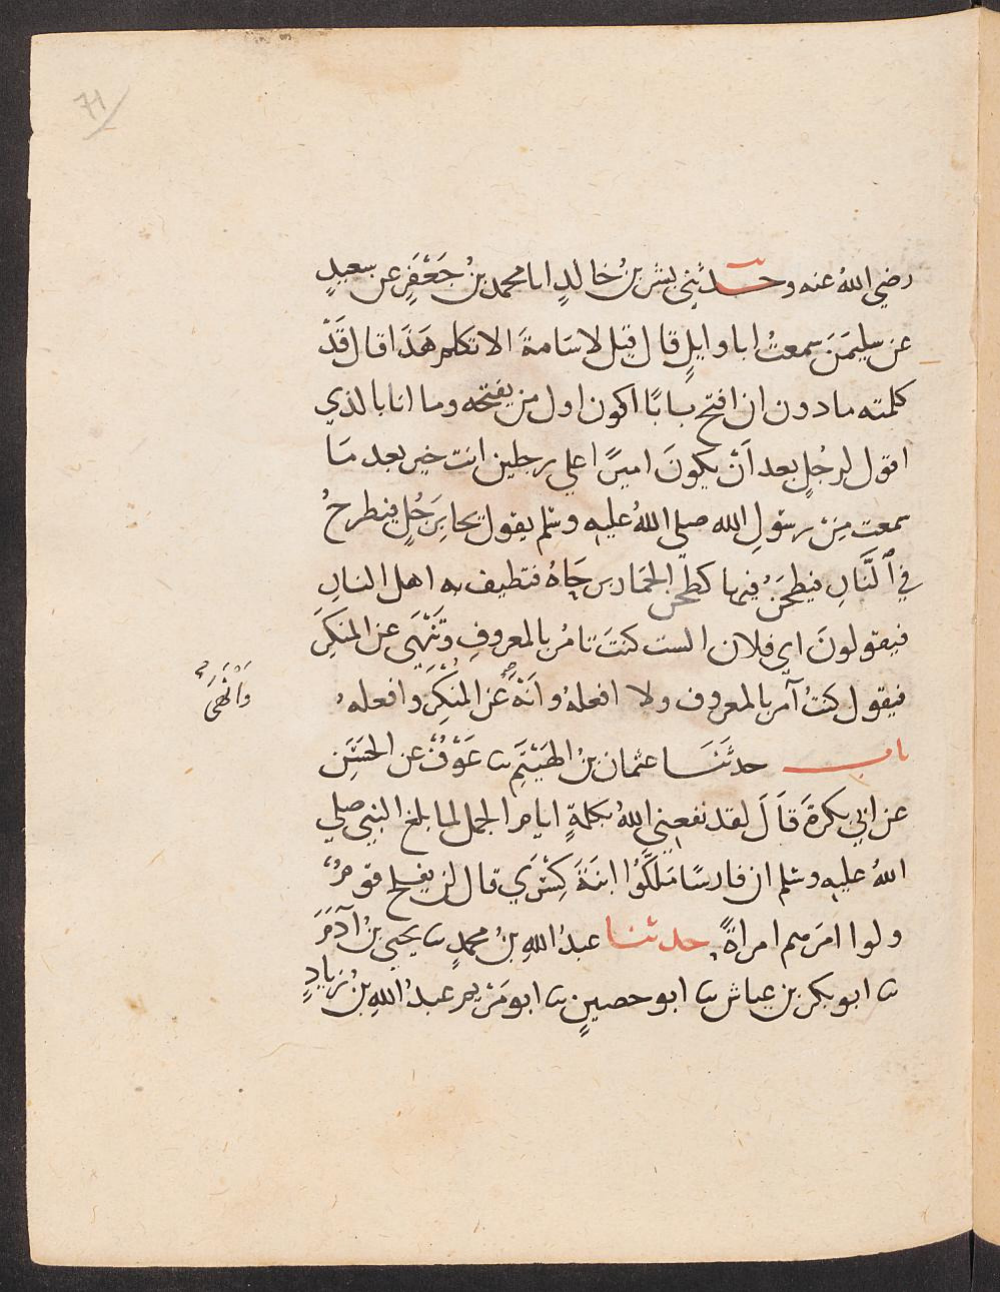 71
رضي اللهُ عنه وحدثني بشر بنُ خالدٍ انا محمد بنُ جَعْفَرٍ عن سعيدٍ
عن سليمَنَ سمعتُ ابا وايلٍ قال قيل لاسَامةَ الا تكلم هَذَا قال قَدْ
كلمته مادون ان افتح بابًا اكون اول من يفتحه وما انا بالذي
اقول لرجُلٍ بعد اَنْ يكونَ اميرًا على رجلين انت خير بعد مَا
سمعت مِنْ رسولِ الله صلى اللهُ عليه وسلم يقول يجا برَجُلٍ فيطرحُ
في اَلنَّارِ فيطحَنُ فيها كطحن الحمار برحَاهُ فتطيف به اهل النارِ
فيقولونَ اي فلان الست كنتَ تامُر بالمعروفِ وتَنْهَى عن المنكرَ
فيقول كنتُ آمر بالمعروف ولا افعلهُ وانهَ عَن المنكَرِ وافعلهُ
وَاَنْهَى
باب حدثَنَا عثمان بنُ الهَيْثَمِ نا عَوْفٌ عن الحسَنِ
عن ابي بكرةَ قاَلَ لقد نفعني اللهُ بكلمةٍ ايام الجمل لما بلغ النبي صلى
اللهُ عليه وسلم ان فارسًا مَلَّكُوا ابنَةَ كِسْرَي قال لن يفلح قومٌ
ولوا امرَهم امراةً حدثنا عبدُ اللهِ بنُ محمدٍ نا يحيى بنُ آدَمَ
نا ابو بكر بن عياش نا ابو حصينٍ نا ابو مَرْيم عبدُ اللهِ بنُ زيادٍ